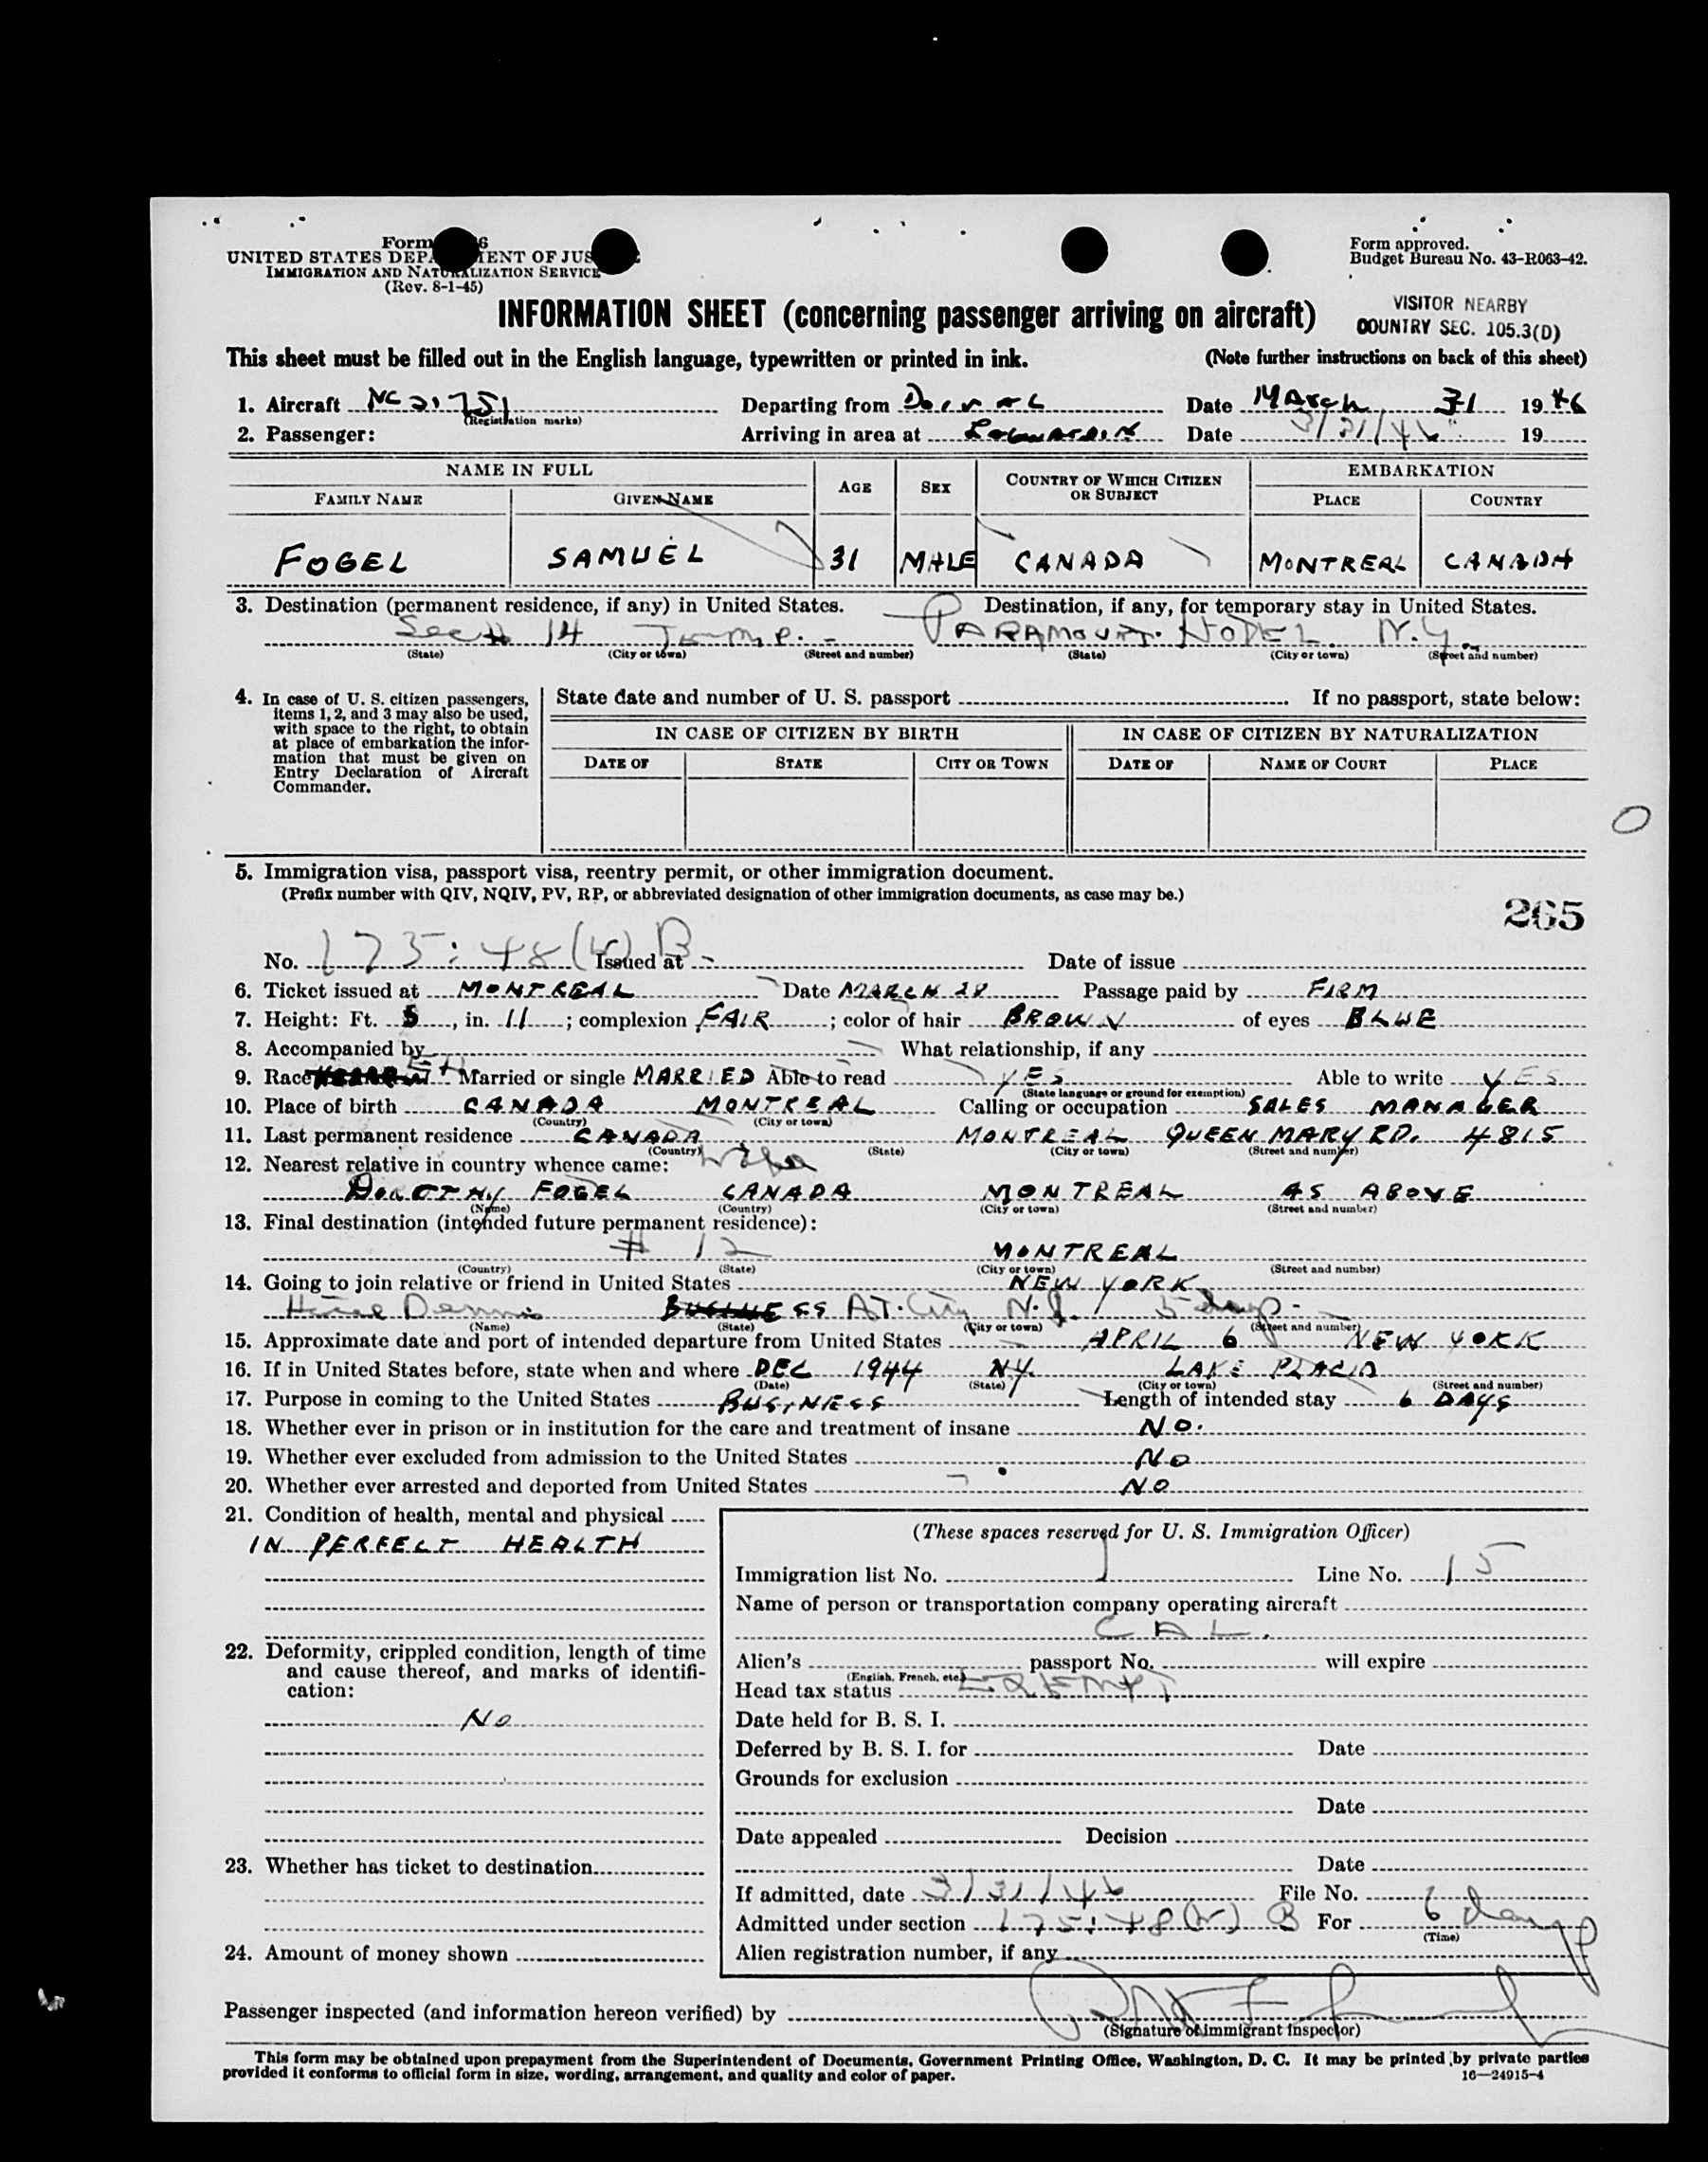 Form 6
UNITED STATES DEPA MENT OF JUS
IMMIGRATION AND NATURALIZATION SERVICE
(Rev. 8-1-45)
Form approved.
Budget Bureau No. 43-R063-42.
INFORMATION SHEET (concerning passenger arriving on aircraft)
VISITOR NEARBY
COUNTRY SEC. 105.3(D)
This sheet must be filled out in the English language, typewritten or printed in ink. (Note further instructions on back of this sheet)
1. Aircraft NC 21751 Departing from DORVAL Date March 31 1946
(Registration marks)
2. Passenger: Arriving in area at Date 3/31/46 19
NAME IN FULL AGE SEX COUNTRY OF WHICH CITIZEN OR SUBJECT EMBARKATION
FAMILY NAME GIVEN NAME PLACE COUNTRY
FOGEL SAMUEL 31 MALE CANADA MONTREAL CANADA
3. Destination (permanent residence, if any) in United States. Destination, if any, for temporary stay in United States.
See # 14 Temp. - PARAMOUNT HOTEL N.Y.
(State) (City or town) (Street and number) (State) (City or town) (Street and number)
4. In case of U. S. citizen passengers, items 1, 2, and 3 may also be used, with space to the right, to obtain at place of embarkation the information that must be given on Entry Declaration of Aircraft Commander.
State date and number of U. S. passport If no passport, state below:
IN CASE OF CITIZEN BY BIRTH IN CASE OF CITIZEN BY NATURALIZATION
DATE OF STATE CITY OR TOWN DATE OF NAME OF COURT PLACE
5. Immigration visa, passport visa, reentry permit, or other immigration document.
(Prefix number with QIV, NQIV, PV, RP, or abbreviated designation of other immigration documents, as case may be.)
265
No. 175:48 B Issued at Date of issue
6. Ticket issued at MONTREAL Date MARCH 28 Passage paid by FIRM
7. Height: Ft. 5, in. 11; complexion FAIR; color of hair BROWN of eyes BLUE
8. Accompanied by What relationship, if any
9. Race Married or single MARRIED Able to read YES Able to write YES
(State language or ground for exemption)
10. Place of birth CANADA MONTREAL Calling or occupation SALES MANAGER
(Country) (City or town)
11. Last permanent residence CANADA MONTREAL QUEEN MARY RD. 4815
(Country) (State) (City or town) (Street and number)
12. Nearest relative in country whence came: wife
DOROTHY FOGEL CANADA MONTREAL AS ABOVE
(Name) (Country) (City or town) (Street and number)
13. Final destination (intended future permanent residence):
# 12 MONTREAL
(Country) (State) (City or town) (Street and number)
14. Going to join relative or friend in United States NEW YORK
Hotel Dennis BUSINESS AT. City N.J. 5 days -
(Name) (State) (City or town) (Street and number)
15. Approximate date and port of intended departure from United States APRIL 6 NEW YORK
16. If in United States before, state when and where DEC 1944 N.Y. LAKE PLACID
(Date) (State) (City or town) (Street and number)
17. Purpose in coming to the United States BUSINESS Length of intended stay 6 DAYS
18. Whether ever in prison or in institution for the care and treatment of insane NO.
19. Whether ever excluded from admission to the United States NO
20. Whether ever arrested and deported from United States NO
21. Condition of health, mental and physical
IN PERFECT HEALTH
22. Deformity, crippled condition, length of time and cause thereof, and marks of identification:
NO
23. Whether has ticket to destination
24. Amount of money shown
(These spaces reserved for U. S. Immigration Officer)
Immigration list No. 1 Line No. 15
Name of person or transportation company operating aircraft
C A L.
Alien's passport No. will expire
(English, French, etc.)
Head tax status EXEMPT
Date held for B. S. I.
Deferred by B. S. I. for Date
Grounds for exclusion
Date
Date appealed Decision
Date
If admitted, date 3/31/46 File No.
Admitted under section 175:48 B For 6 days
(Time)
Alien registration number, if any
Passenger inspected (and information hereon verified) by
(Signature of immigrant inspector)
This form may be obtained upon prepayment from the Superintendent of Documents, Government Printing Office, Washington, D. C. It may be printed by private parties
provided it conforms to official form in size, wording, arrangement, and quality and color of paper. 16—24915-4